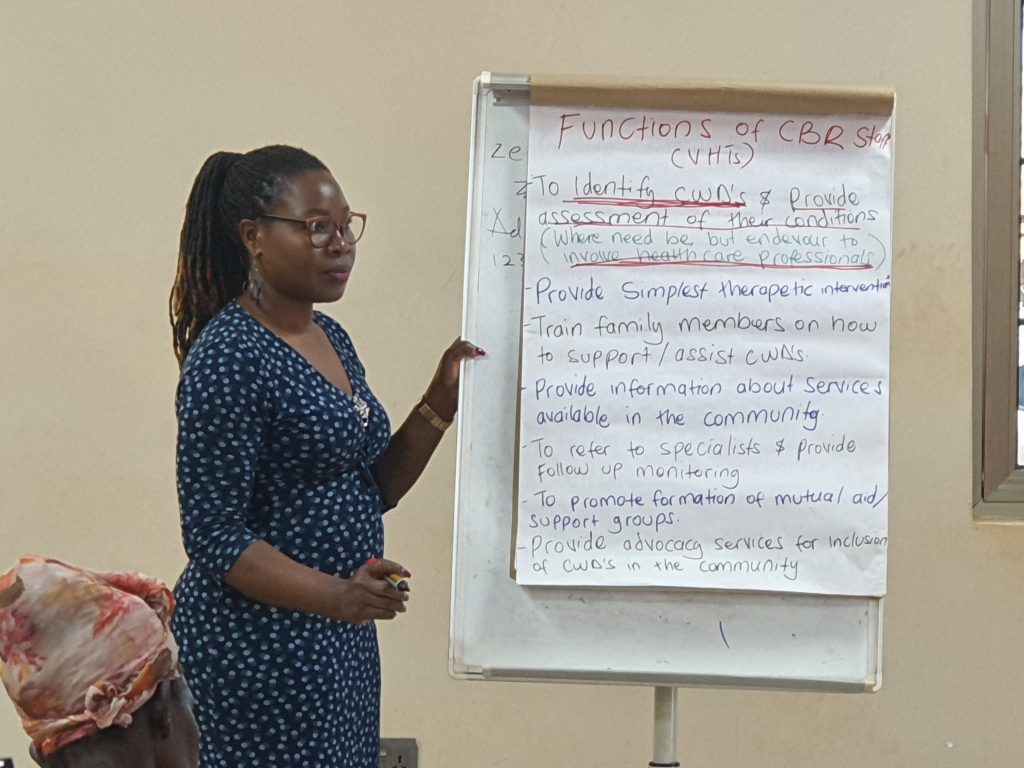 Functions of CBR Staff
(VHTs)
- To Identify CWD's & Provide
assessment of their conditions
(Where need be, but endevour to
involve health care professionals)
- Provide Simplest therapetic intervention
- Train family members on how
to support/assist CWD's.
- Provide information about services
available in the community.
- To refer to specialists & provide
Follow up monitoring
- To promote formation of mutual aid/
support groups.
- Provide advocacy services for inclusion
of CWD's in the community
Ze
Ad
123